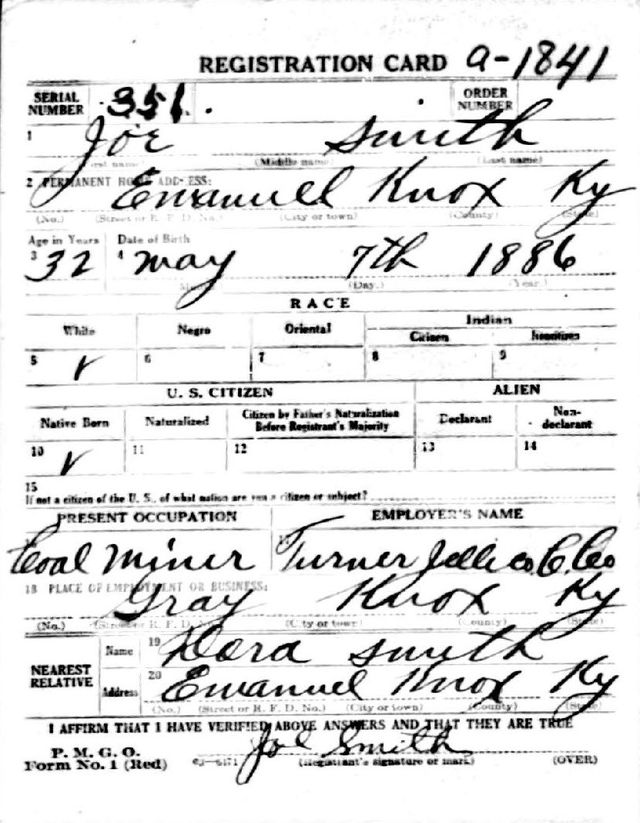 REGISTRATION CARD a-1841
SERIAL NUMBER 351. ORDER NUMBER
1 Joe Smith
(First name) (Middle name) (Last name)
2 PERMANENT HOME ADDRESS:
Emanuel Knox Ky
(No.) (Street or R. F. D. No.) (City or town) (County) (State)
Age in Years Date of Birth
3 32 4 May 7th 1886
(Month.) (Day.) (Year.)
RACE
White Negro Oriental Indian
Citizen Noncitizen
5 ✓ 6 7 8 9
U. S. CITIZEN ALIEN
Native Born Naturalized Citizen by Father's Naturalization Before Registrant's Majority Declarant Non-declarant
10 ✓ 11 12 13 14
15
If not a citizen of the U. S., of what nation are you a citizen or subject?
PRESENT OCCUPATION EMPLOYER'S NAME
Coal Miner Turner Jellico C. Co
18 PLACE OF EMPLOYMENT OR BUSINESS:
Gray Knox Ky
(No.) (Street or R. F. D. No.) (City or town) (County) (State)
NEAREST RELATIVE Name 19 Dora Smith
Address 20 Emanuel Knox Ky
(No.) (Street or R. F. D. No.) (City or town) (County) (State)
I AFFIRM THAT I HAVE VERIFIED ABOVE ANSWERS AND THAT THEY ARE TRUE
P. M. G. O.
Form No. 1 (Red) Joe Smith
(Registrant's signature or mark) (OVER)